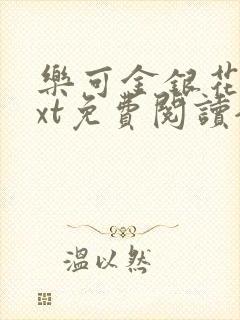 樂可金銀花
xt免費閱讀
溫以然